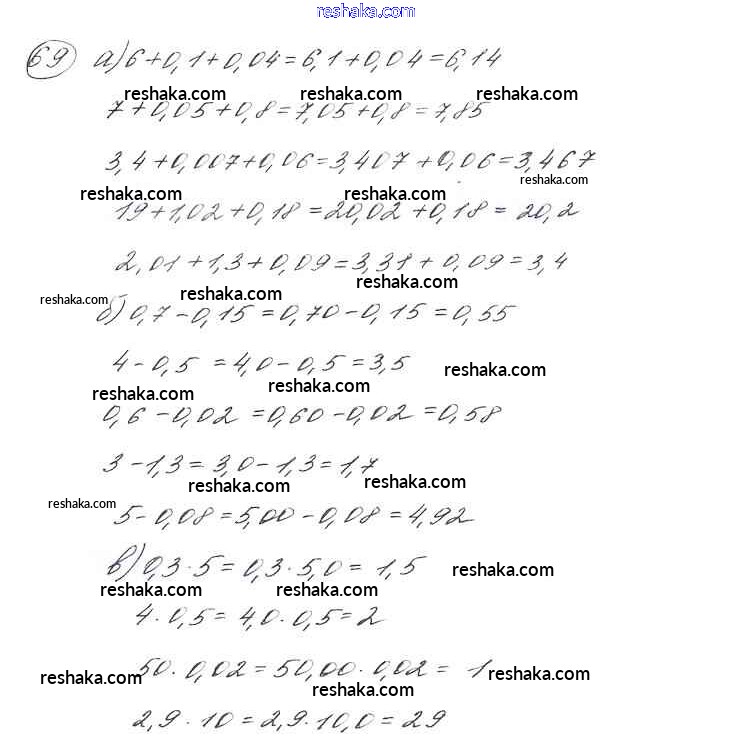 reshaka.com
69 а) 6 + 0,1 + 0,04 = 6,1 + 0,04 = 6,14
reshaka.com reshaka.com reshaka.com
7 + 0,05 + 0,8 = 7,05 + 0,8 = 7,85
3,4 + 0,007 + 0,06 = 3,407 + 0,06 = 3,467
reshaka.com reshaka.com reshaka.com
19 + 1,02 + 0,18 = 20,02 + 0,18 = 20,2
2,01 + 1,3 + 0,09 = 3,31 + 0,09 = 3,4
reshaka.com reshaka.com reshaka.com
б) 0,7 - 0,15 = 0,70 - 0,15 = 0,55
4 - 0,5 = 4,0 - 0,5 = 3,5
reshaka.com reshaka.com reshaka.com
0,6 - 0,02 = 0,60 - 0,02 = 0,58
3 - 1,3 = 3,0 - 1,3 = 1,7
reshaka.com reshaka.com reshaka.com
5 - 0,08 = 5,00 - 0,08 = 4,92
в) 0,3 · 5 = 0,3 · 5,0 = 1,5
reshaka.com reshaka.com reshaka.com
4 · 0,5 = 4,0 · 0,5 = 2
50 · 0,02 = 50,00 · 0,02 = 1
reshaka.com reshaka.com reshaka.com
2,9 · 10 = 2,9 · 10,0 = 29